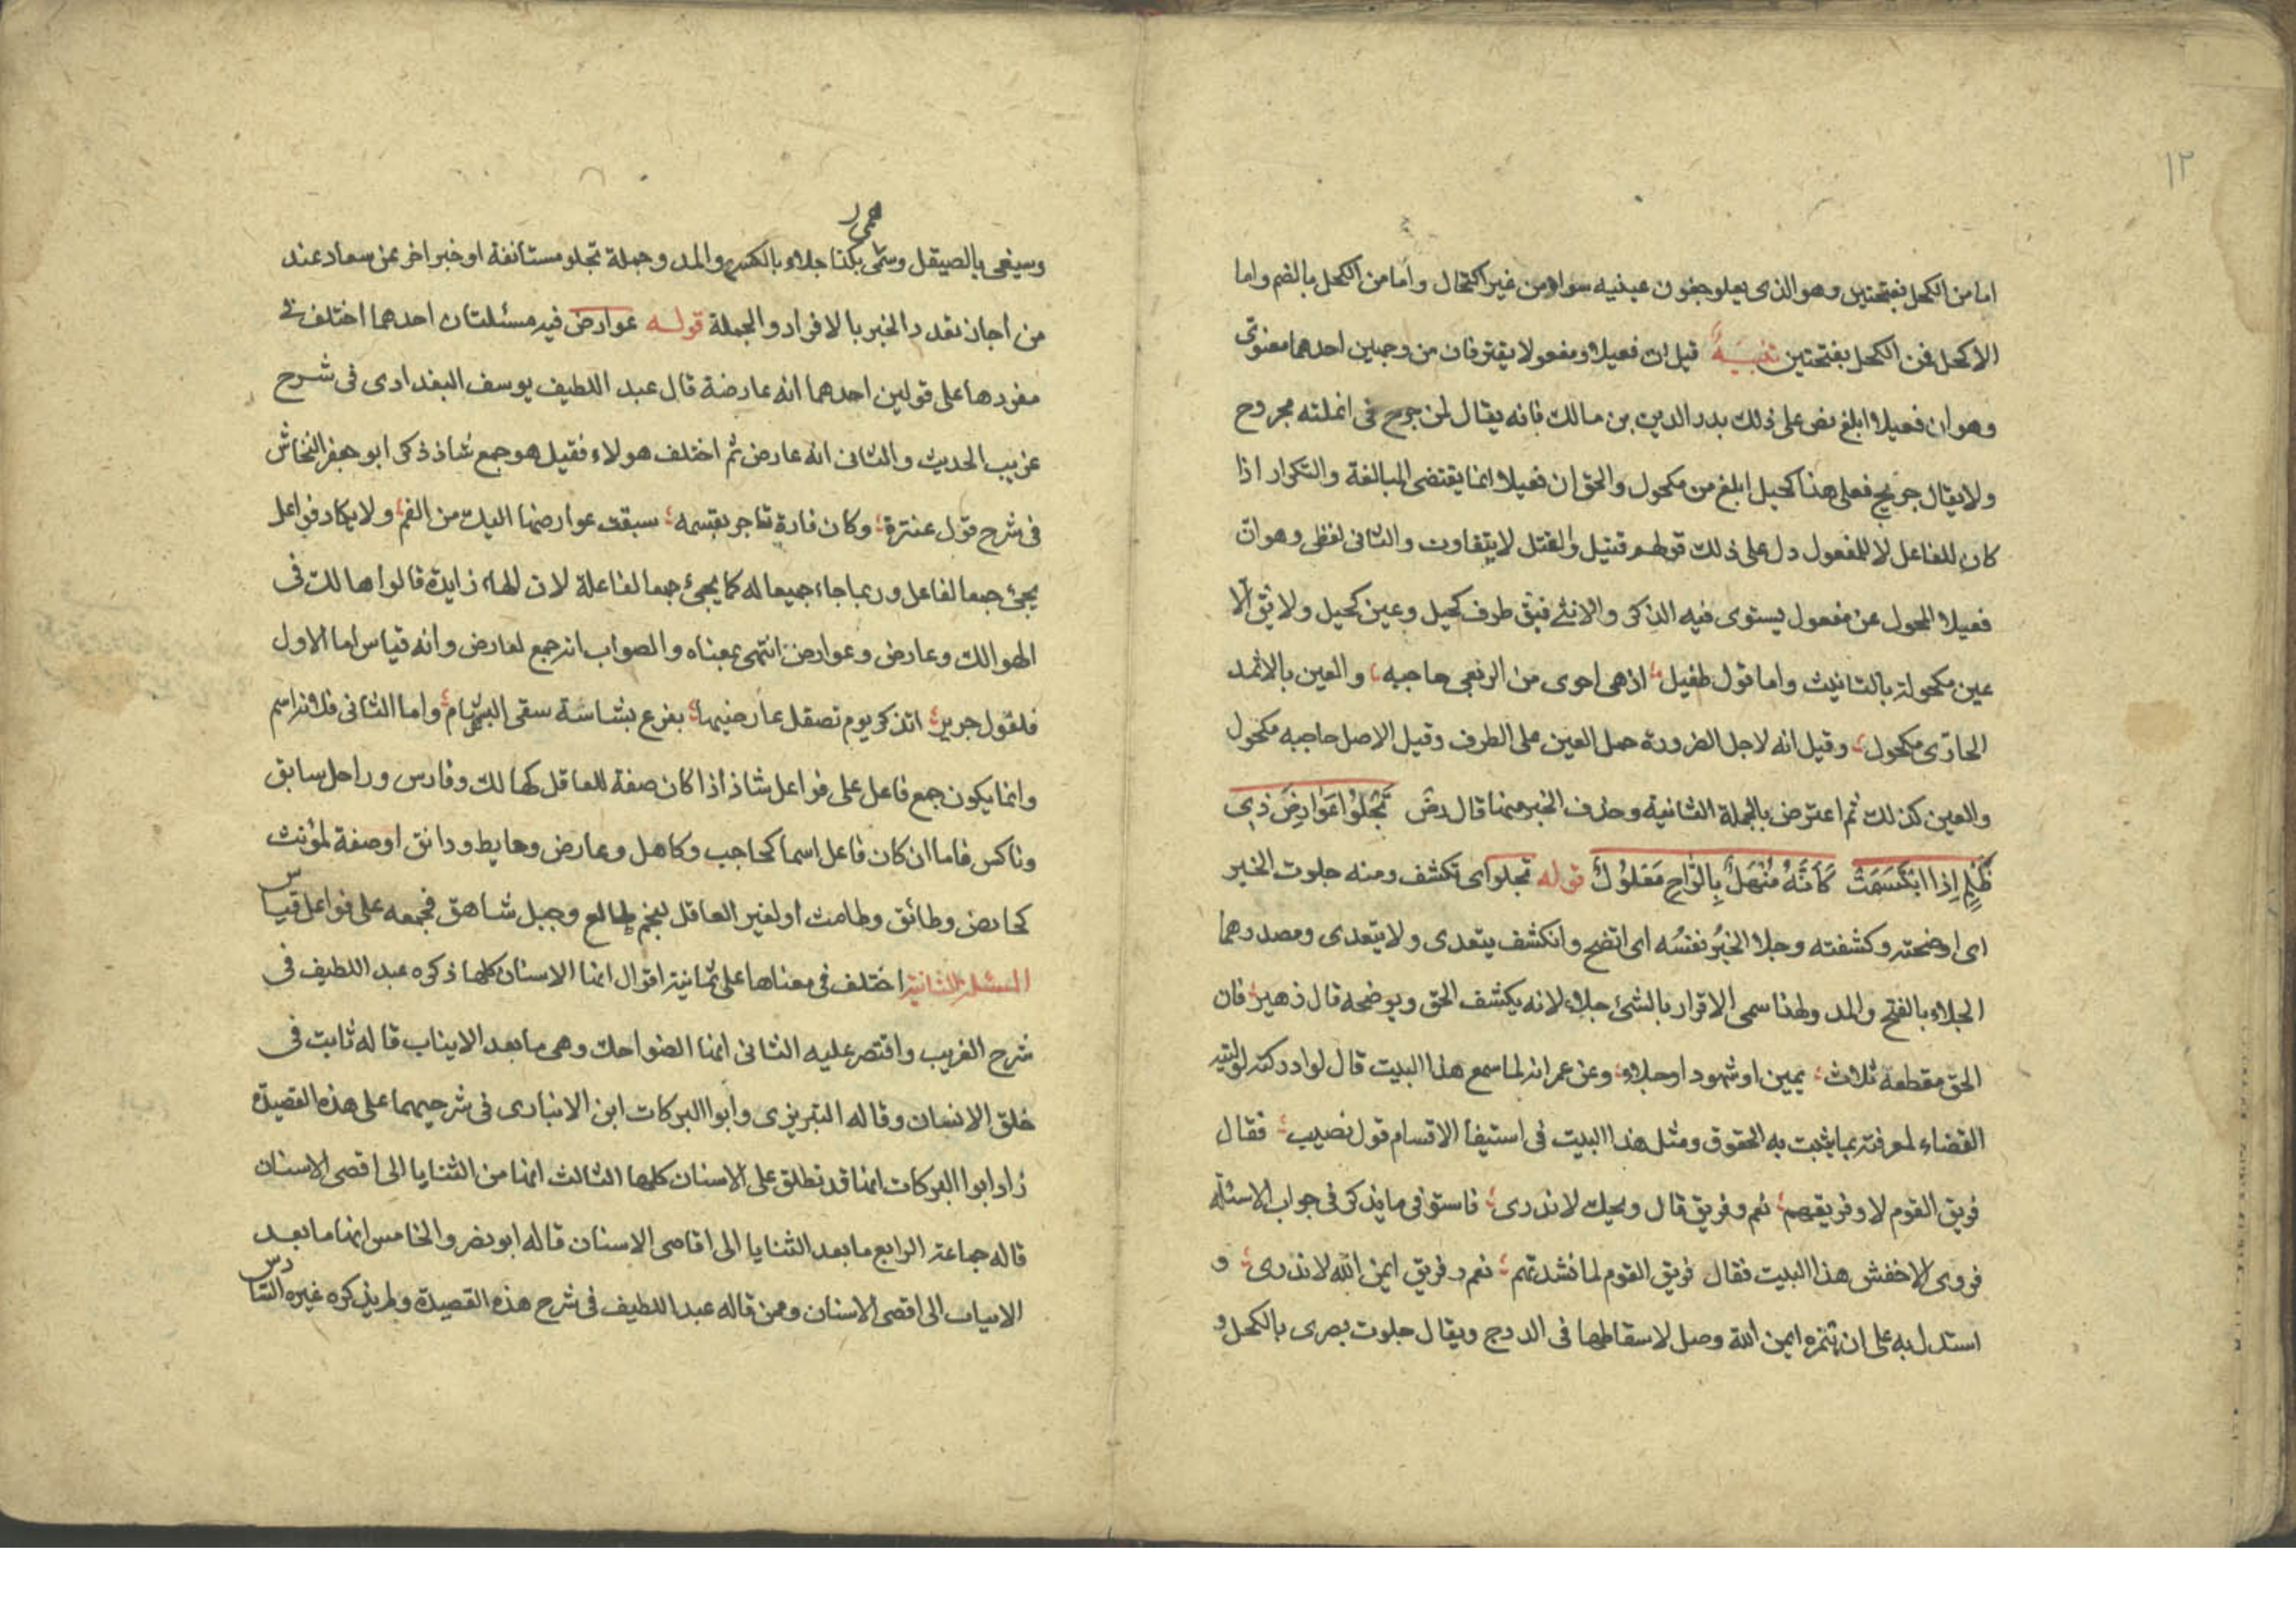 ١٢
اما من الكحل بفتحتين وهو الذى يعلو جفون عينيه سواد من غير اكتحال واما من الكحل بالضم واما
الاكحل فمن الكحل بفتحتين تنبيه قيل ان فعيلا ومفعولا يفترقان من وجهين احدهما معنوى
وهو ان فعيلا ابلغ نص على ذلك بدر الدين بن مالك فانه يقال لمن جرح فى انملته مجروح
ولا يقال جريح فعلى هذا كحيل ابلغ من مكحول والحق ان فعيلا انما يقتضى المبالغة والتكرار اذا
كان للفاعل لا للمفعول دل على ذلك قولهم قتيل والقتل لا يتفاوت والثانى لفظى وهو ان
فعيلا المحول عن مفعول يستوى فيه الذكر والانثى فيق طرف كحيل وعين كحيل ولا يق الا
عين مكحولة بالتانيث واما قول طفيل اذ هى احوى من الربعى حاجبه والعين بالاثمد
الحارى مكحول وقيل انه لاجل الضرورة حمل العين على الطرف وقيل الاصل حاجبه مكحول
والعين كذلك ثم اعترض بالجملة الثانية وحذف الخبر منها قال رض تَجْلُوا عَوَارِضَ ذِى
ظَلْمٍ اِذَا ابْتَسَمَتْ كَاَنَّهُ مُنْهَلٌ بِالرَّاحِ مَعْلُولُ قوله تجلو اى تكشف ومنه جلوت الخبر
اى اوضحته وكشفته وجلا الخبرُ نفسُه اى اتضح وانكشف يتعدى ولا يتعدى ومصدرهما
الجلاء بالفتح والمد ولهذا سمى الاقرار بالشئ جلاء لانه يكشف الحق ويوضحه قال زهير فان
الحق مقطعه ثلاث يمين او شهود او جلاء وعن عمر انه لما سمع هذا البيت قال لو ادركته لوليته
القضاء لمعرفته بما يثبت به الحقوق ومثل هذا البيت فى استيفا الاقسام قول نصيب فقال
فريق القوم لا وفريقهم نعم وفريق قال ويحك لا ندرى فاستوفى ما يذكر فى جواب الاسئلة
فروى الاخفش هذا البيت فقال فريق القوم لما نشدتهم نعم وفريق ايمن الله لا ندرى و
استدل به على ان همزه ايمن الله وصل لاسقاطها فى الدرج ويقال جلوت بصرى بالكحل و
وسيفى بالصيقل وسمى بكذا جلاء بالكسر والمد وجملة تجلو مستانفة او خبر اخر عن سعاد عند
من اجاز تعدد الخبر بالافراد والجملة قوله عوارض فيه مسئلتان احدهما اختلف فى
مفردها على قولين احدهما انه عارضة قال عبد اللطيف يوسف البغدادى فى شرح
غريب الحديث والثانى انه عارض ثم اختلف هولاء فقيل هو جمع شاذ ذكر ابو جعفر النحاس
فى شرح قول عنترة وكان فارة تاجر بقسيمه سبقت عوارضها اليك من الفم ولا يكاد فواعل
يجئ جمعا لفاعل وربما جاء جميعا له كما يجئ جمعا لفاعلة لان الهاء زايدة قالوا هالك فى
الهوالك وعارض وعوارض انتهى بمعناه والصواب انه جمع لعارض وانه قياس اما الاول
فلقول جرير اتذكر يوم تصقل عارضيها بفرع بشاشة سقى البشام واما الثانى فلانه اسم
وانما يكون جمع فاعل على فواعل شاذ اذا كان صفة للعاقل كهالك وفارس وراحل سابق
وناكس فاما ان كان فاعل اسما كحاجب وكاهل وعارض وحايط ودانق او صفة لمؤنث
كحايض وطائق وطامث او لغير العاقل لنجم طالع وجبل شاهق فجمعه على فواعل قياس
المسئلة الثانية اختلف فى معناها على ثمانية اقوال انها الاسنان كلها ذكره عبد اللطيف فى
شرح الغريب واقتصر عليه الثانى انها الضواحك وهى ما بعد الانياب قاله ثابت فى
خلق الانسان وقاله التبريزى وابوا البركات ابن الانبارى فى شرحيهما على هذه القصيدة
زاد ابوا البركات انها قد تطلق على الاسنان كلها الثالث انها من الثنايا الى اقصى الاسنان
قاله جماعة الرابع ما بعد الثنايا الى اقاصى الاسنان قاله ابو نصر والخامس انها ما بعد
الانياب الى اقصى الاسنان وممن قاله عبد اللطيف فى شرح هذه القصيدة ولم يذكره غيره السادس